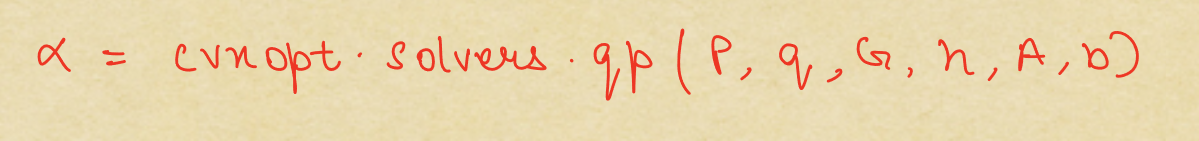 α = cvxopt.solvers.qp(P, q, G, h, A, b)